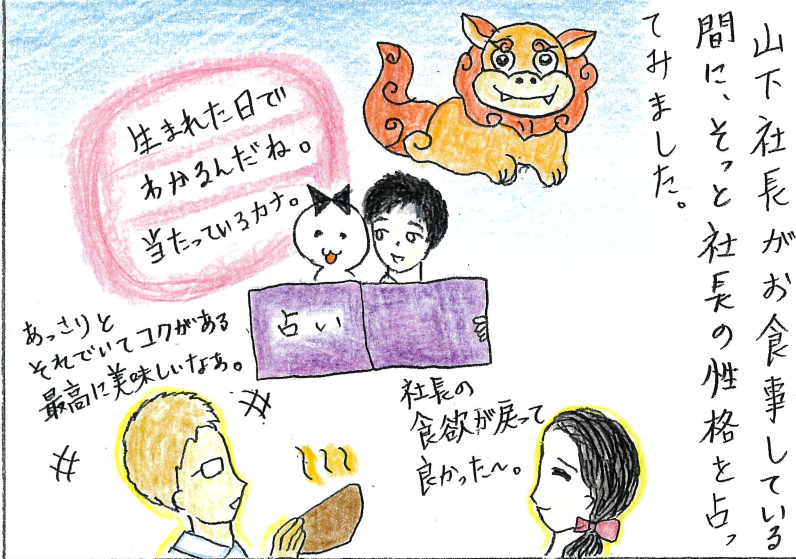 山下社長がお食事している
間に、そっと社長の性格を占っ
てみました。
生まれた日で
わかるんだね。
当たっているカナ。
占い
あっさりと
それでいてコクがある
最高に美味しいなぁ。
社長の
食欲が戻って
良かった〜。